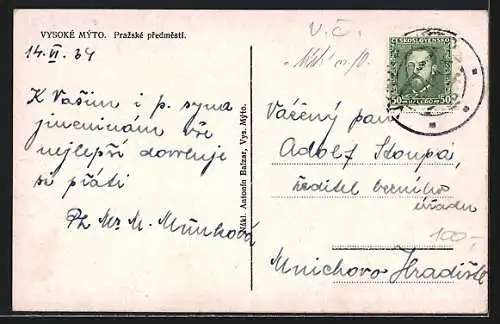 VYSOKÉ MÝTO. Pražské předměstí.
14. VI. 34
K Vašim i p. syna
jmeninám vše
nejlepší dovoluje
si přáti
Ph Mr. M. Münhová
Nákl. Antonín Balzar, Vys. Mýto.
V.Č.
ČESKOSLOVENSKO
50 50
Vážený pan
Adolf Stoupa,
ředitel berního
úřadu
100,-
Mnichovo Hradiště